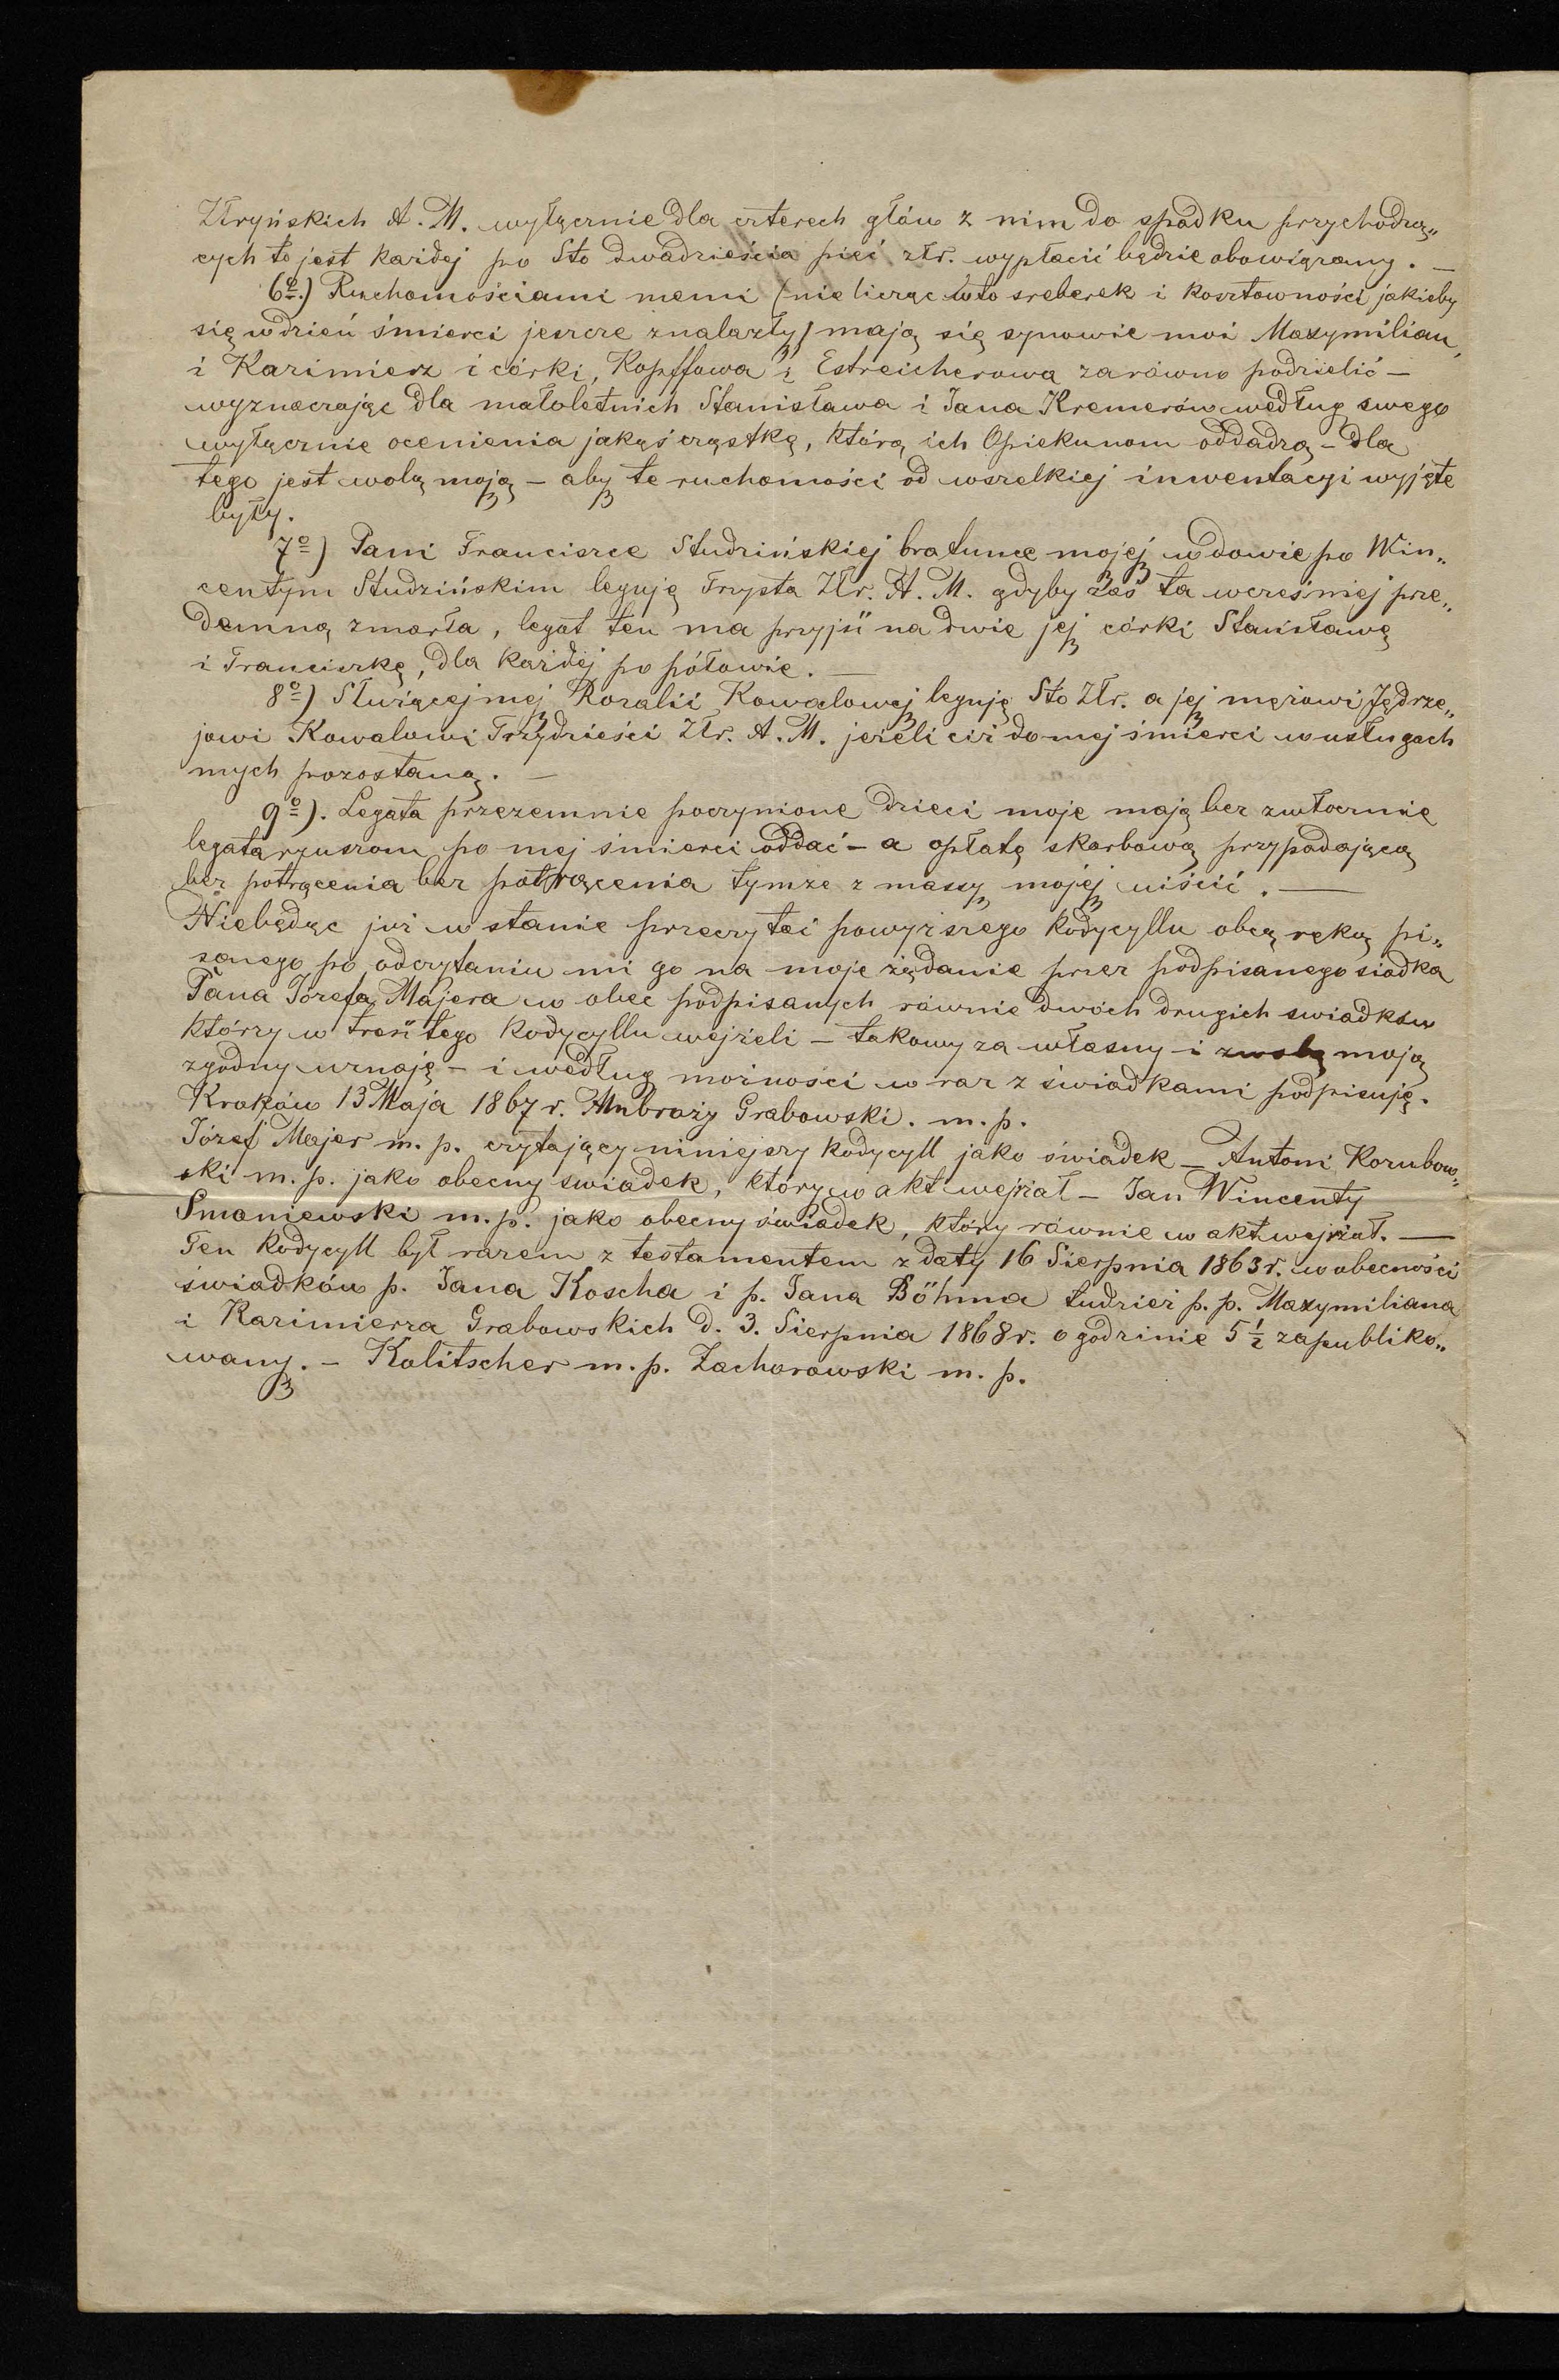 Złryńskich A. M. wyłącznie dla czterech głów z nim do spadku przychodzą„
cych to jest każdej po Sto dwadzieścia pięć złr. wypłacić będzie obowiązany. —
6o.) Ruchomościami memi (nie licząc w to sreberek i kosztowności jakieby
się w dzień śmierci jeszcze znalazły) mają się synowie moi Maxymilian,
i Kazimierz i córki, Kopffowa i Estreicherowa zarówno podzielić —
wyznaczając dla małoletnich Stanisława i Jana Kremerów według swego
wyłącznie ocenienia jakąś cząstkę, którą ich Opiekunom oddadzą — dla
tego jest wolą moją — aby te ruchomości od wszelkiej inwentacyi wyjęte
były.
7o) Pani Franciszce Studzińskiej bratunce mojej wdowie po Win„
centym Studzińskim leguję Trzysta Złr. A. M. gdyby zaś ta wcześniej prze„
demną zmarła, legat ten ma przyjść na dwie jej córki Stanisławę
i Franciszkę, dla każdej po połowie. —
8o) Służącej mej Rozalii Kowalowej leguję Sto Złr. a jej mężowi Jędrze„
jowi Kowalowi Trzydzieści Złr. A. M. jeżeli ciż do mej śmierci w usługach
mych pozostaną. —
9o). Legata przezemnie poczynione dzieci moje mają bez zwłocznie
legataryuszom po mej śmierci oddać — a opłatę skarbową przypadającą
bez potrącenia bez potrącenia tymże z massy mojej uiścić. —
Niebędąc już w stanie przeczytać powyższego kodycyllu obcą ręką pi„
sanego po odczytaniu mi go na moje żądanie przez podpisanego siadka
Pana Józefa Majera w obec podpisanych równie dwóch drugich swiadków
którzy w treść tego kodycyllu wejżeli — takowy za własny i z wolą moją
zgodny uznaję — i według możności w raz z świadkami podpisuję.
Kraków 13 Maja 1867 r. Ambroży Grabowski. m. p.
Józef Majer m. p. czytający niniejszy kodycyll jako świadek — Antoni Korubow„
ski m. p. jako obecny swiadek, który w akt wejżał — Jan Wincenty
Smoniewski m. p. jako obecny świadek, który równie w akt wejrzał. —
Ten kodycyll był razem z testamentem z daty 16 Sierpnia 1863 r. w obecności
świadków p. Jana Koscha i p. Jana Böhma tudzież p. p. Maxymiliana
i Kazimierza Grabowskich d. 3. Sierpnia 1868 r. o godzinie 5 ½ zapubliko„
wany. — Kolitscher m. p. Zachorowski m. p.